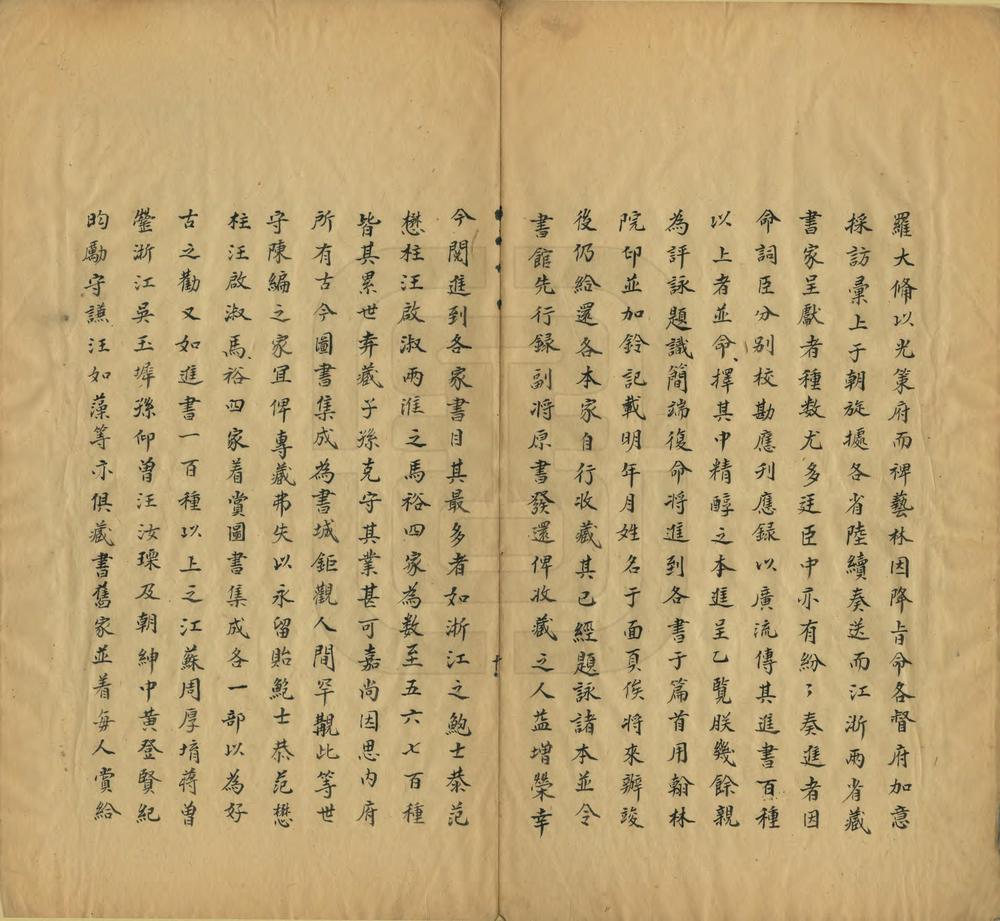 羅大脩以光策府而裨藝林因降旨命各督府加意
採訪彙上于朝旋據各省陸續奏送而江浙兩省藏
書家呈獻者種数尤多廷臣中亦有紛〻奏進者因
命詞臣分别校勘應刋應録以廣流傳其進書百種
以上者並命擇其中精醇之本進呈乙覽朕幾餘親
為評詠題識簡端復命将進到各書于篇首用翰林
院印並加鈐記載明年月姓名于面頁俟将來辦竣
後仍給還各本家自行收藏其已經題詠諸本並令
書館先行録副将原書發還俾收藏之人益增榮幸
今閲進到各家書目其最多者如浙江之鮑士恭范
懋柱汪啟淑兩淮之馬裕四家為数至五六七百種
皆其累世弆藏子孫克守其業甚可嘉尚因思内府
所有古今圖書集成為書城鉅觀人間罕覯此等世
守陳編之家宜俾專藏弗失以永留貽鮑士恭范懋
柱汪啟淑馬裕四家着賞圖書集成各一部以為好
古之勸又如進書一百種以上之江蘇周厚堉蔣曾
鎣浙江吴玉墀孫仰曾汪汝瑮及朝紳中黄登賢紀
昀勵守謙汪如藻等亦俱藏書舊家並着每人賞給
十